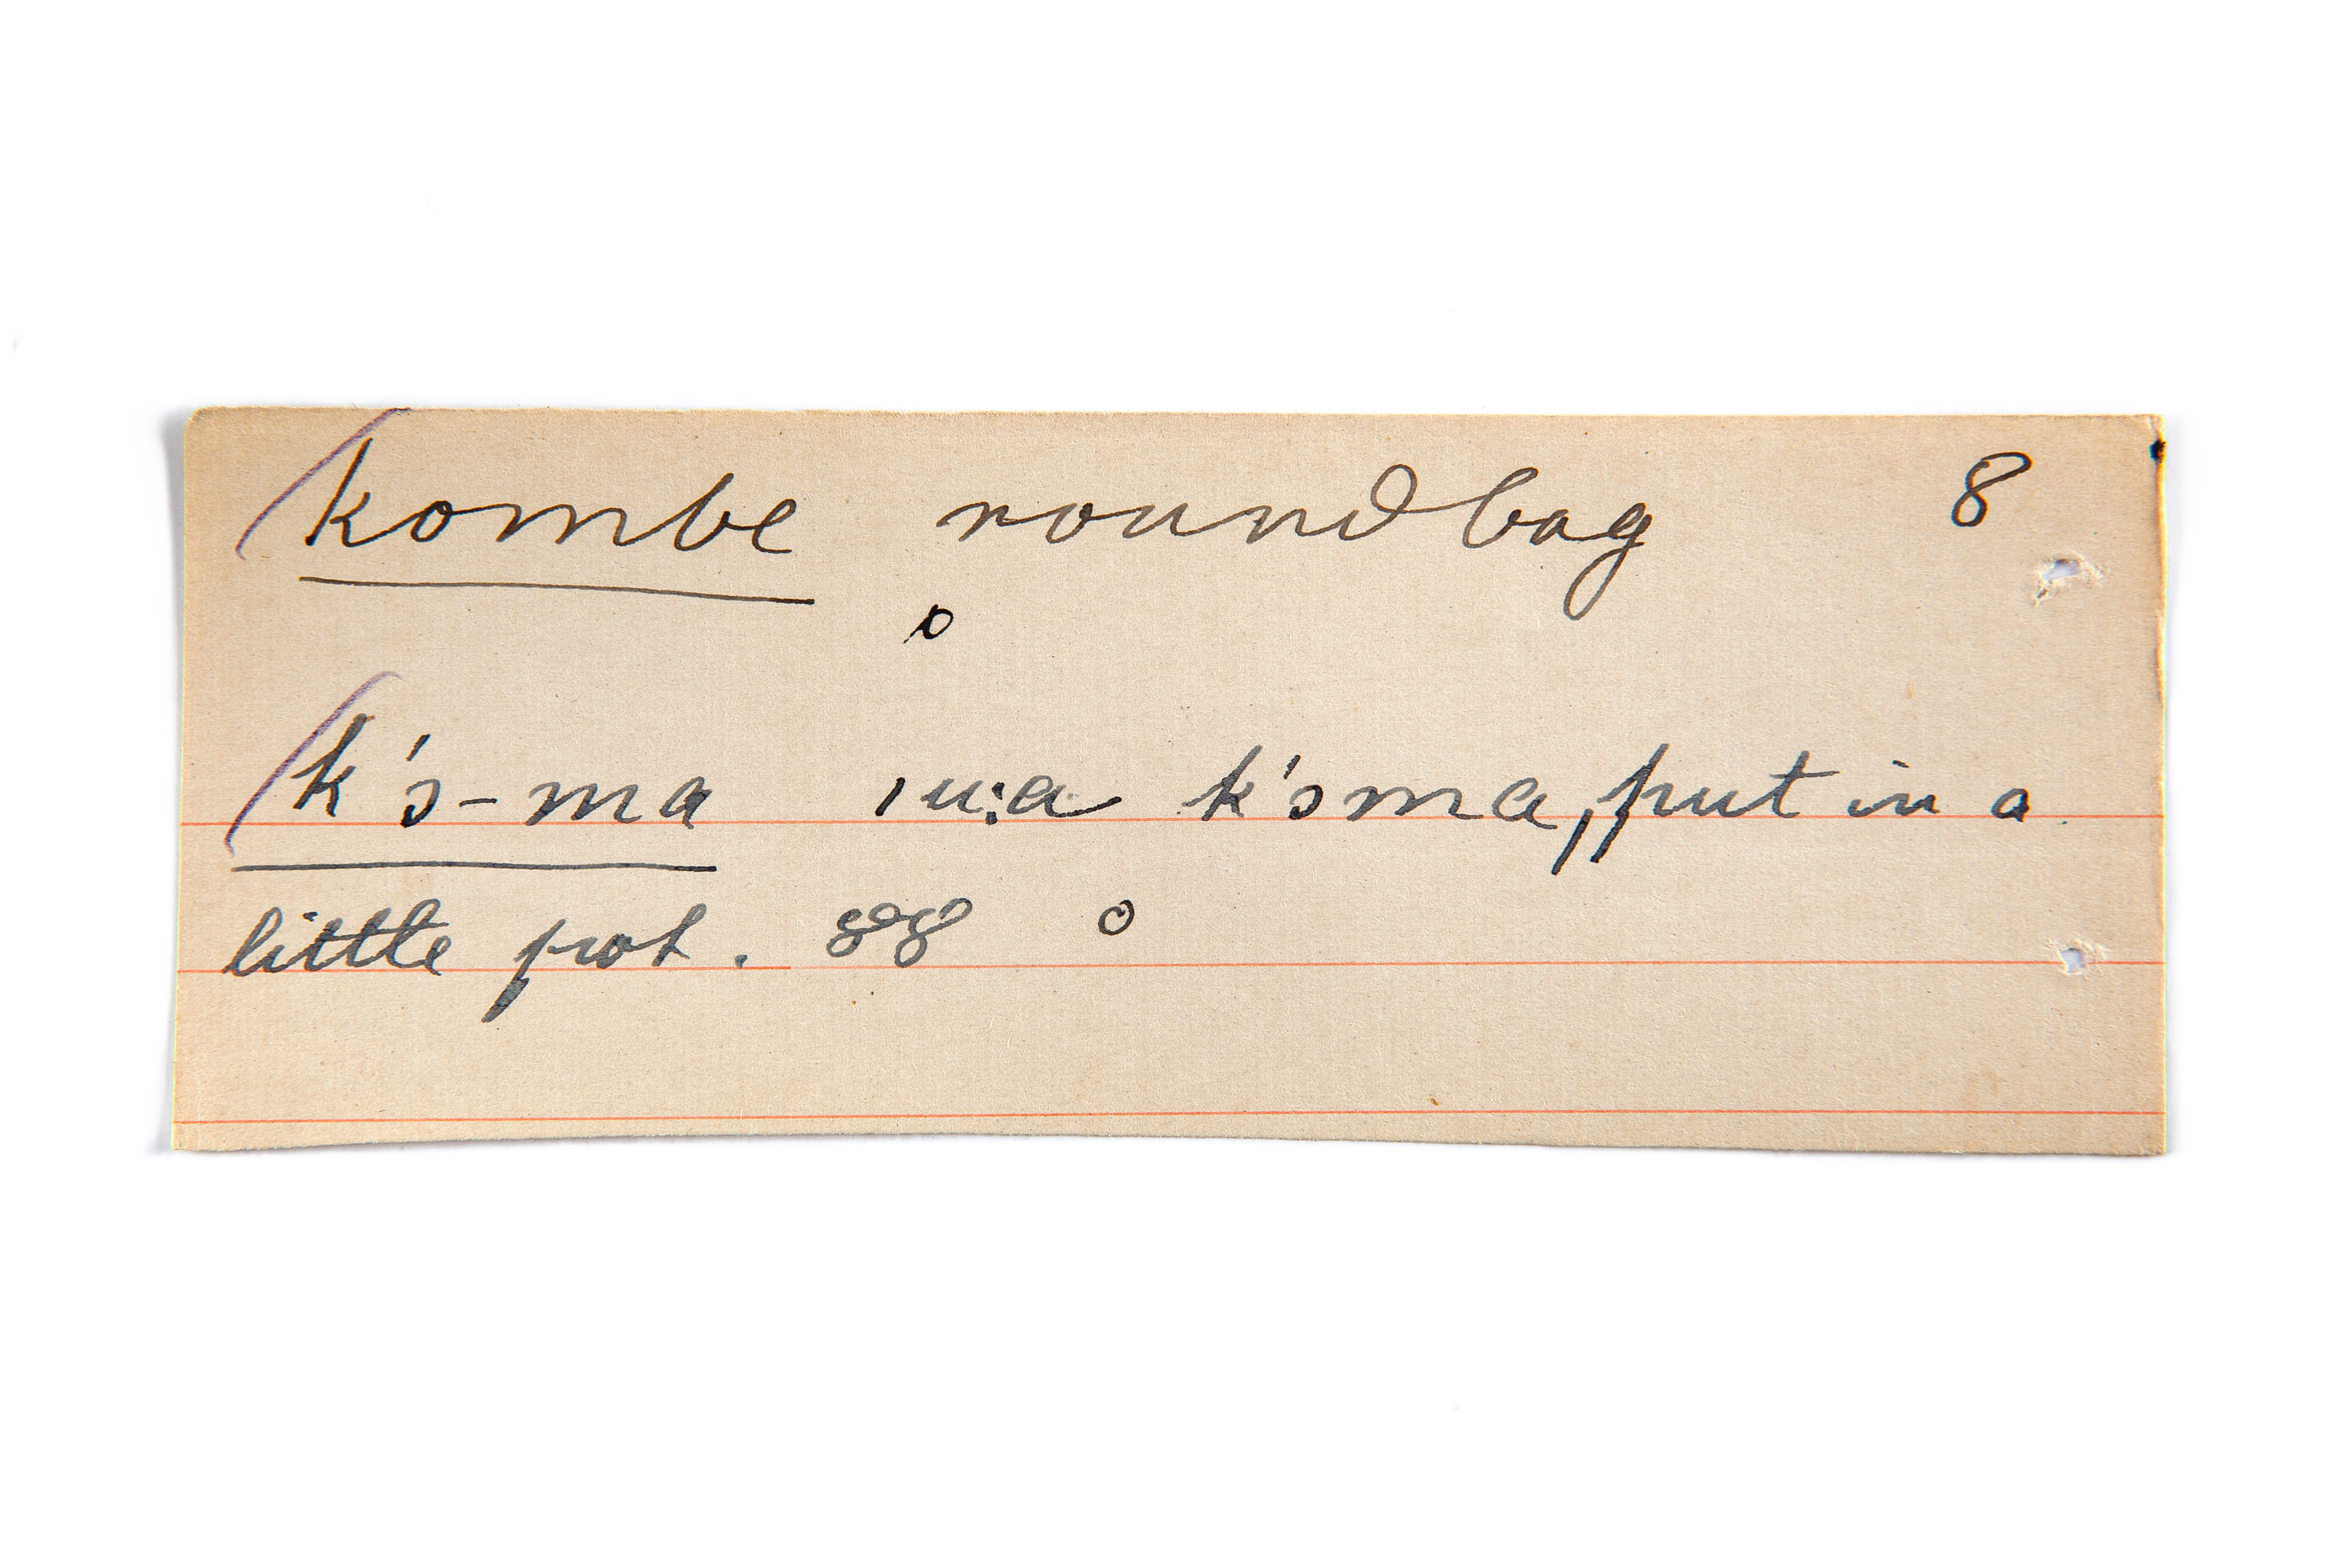 kombe roundbag 8
o
k'ɔ-ma ıu:a k'ɔma, put in a
little pot. 88 o